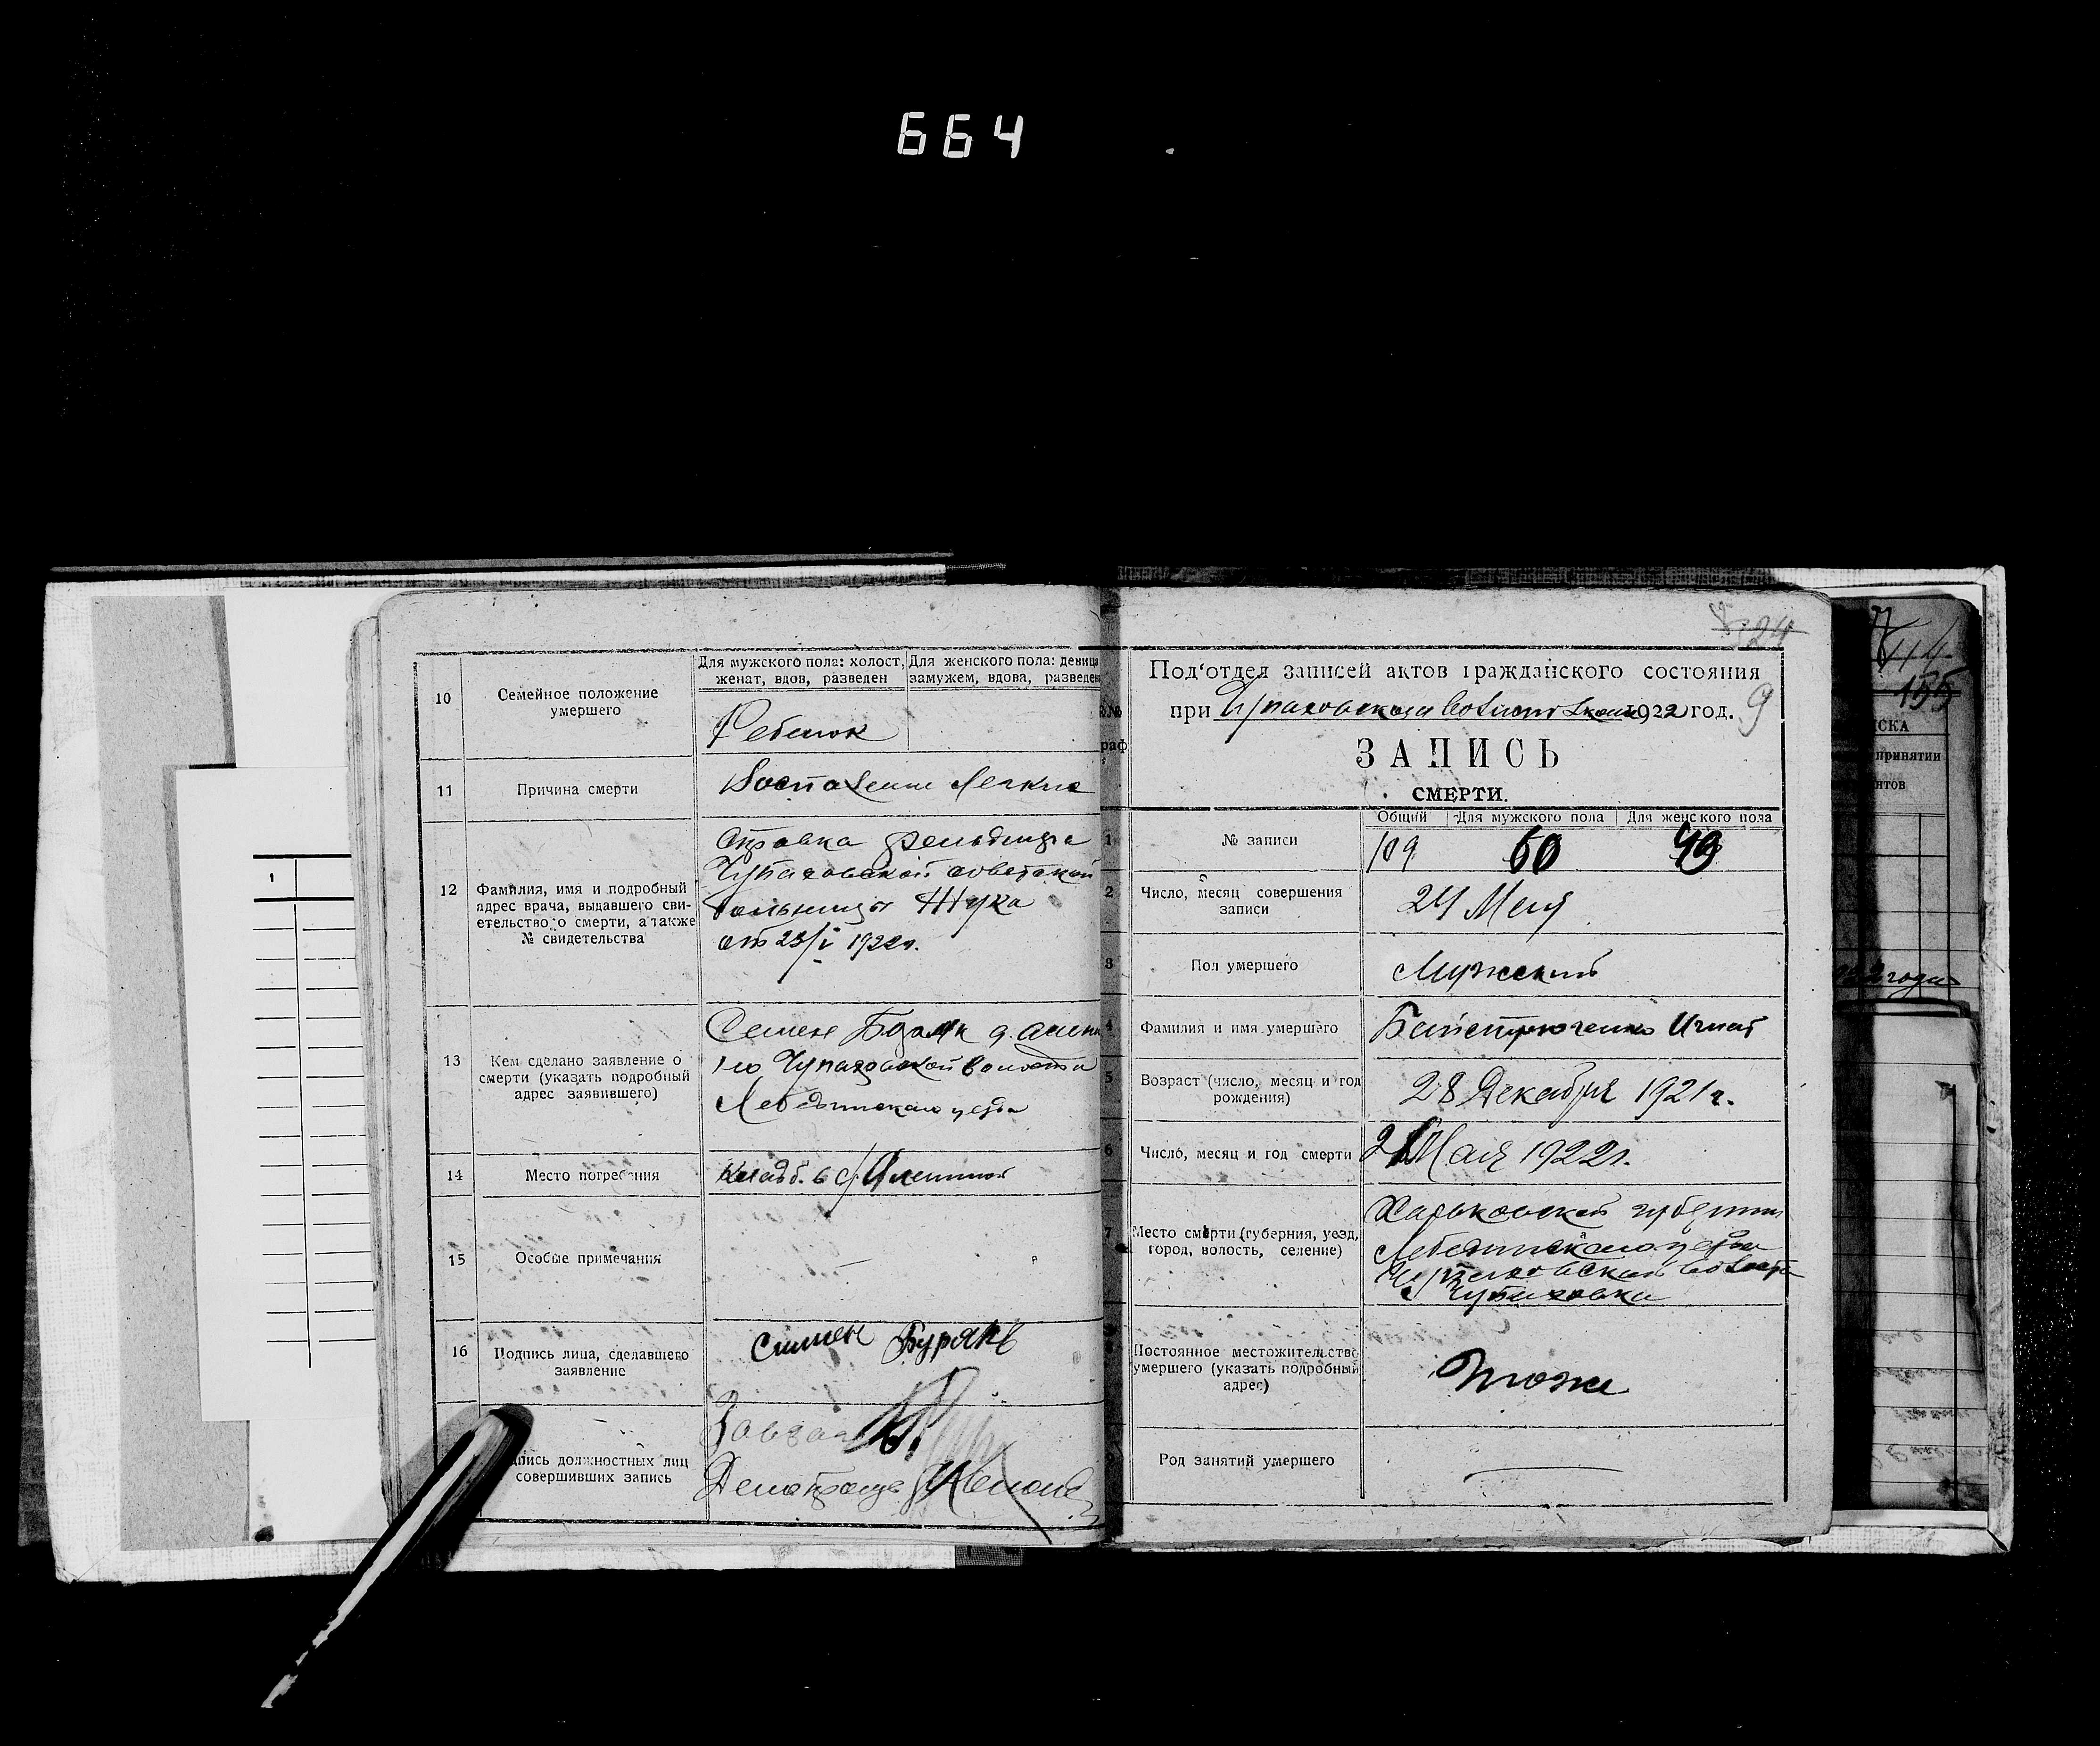 664
10
Семейное положение
умершего
Для мужского пола: холост,
женат, вдов, разведен
Для женского пола: девица
замужем, вдова, разведен
Ребенок
11
Причина смерти
Воспаление Легких
12
Фамилия, имя и подробный
адрес врача, выдавшего сви-
етельство о смерти, а также
№ свидетельства
Справка фельдшера
Чупаховской советской
больницы Жука
от 23/V 1922г.
13
Кем сделано заявление о
смерти (указать подробный
адрес заявившего)
Семен
Чупаховской волости
Лебединскаго уезда
14
Место погребения
Кладб. в с.
15
Особые примечания
16
Подпись лица, сделавшего
заявление
Симен Бурякъ
пись должностных лиц
совершивших запись
24
9
Под'отдел записей актов гражданского состояния
при Чупаховском 1922 год.
раф
ЗАПИСЬ
СМЕРТИ.
Общий
Для мужского пола
Для женского пола
1
№ записи
109
60
49
2
Число, месяц совершения
записи
24 Мая
3
Пол умершего
Мужский
4
Фамилия и имя умершего
Игнат
5
Возраст (число, месяц и год
рождения)
28 Декабря 1921 г.
6
Число, месяц и год смерти
Мая 1922г.
7
Место смерти (губерния, уезд,
город, волость, селение)
Харьковской губернии
Лебединскаго уезда
Чупаховской волости
Чупаховка
Постоянное местожительство
умершего (указать подробный
адрес)
Тоже
Род занятий умершего
155
ИСКА
принятии
нтов
года
1